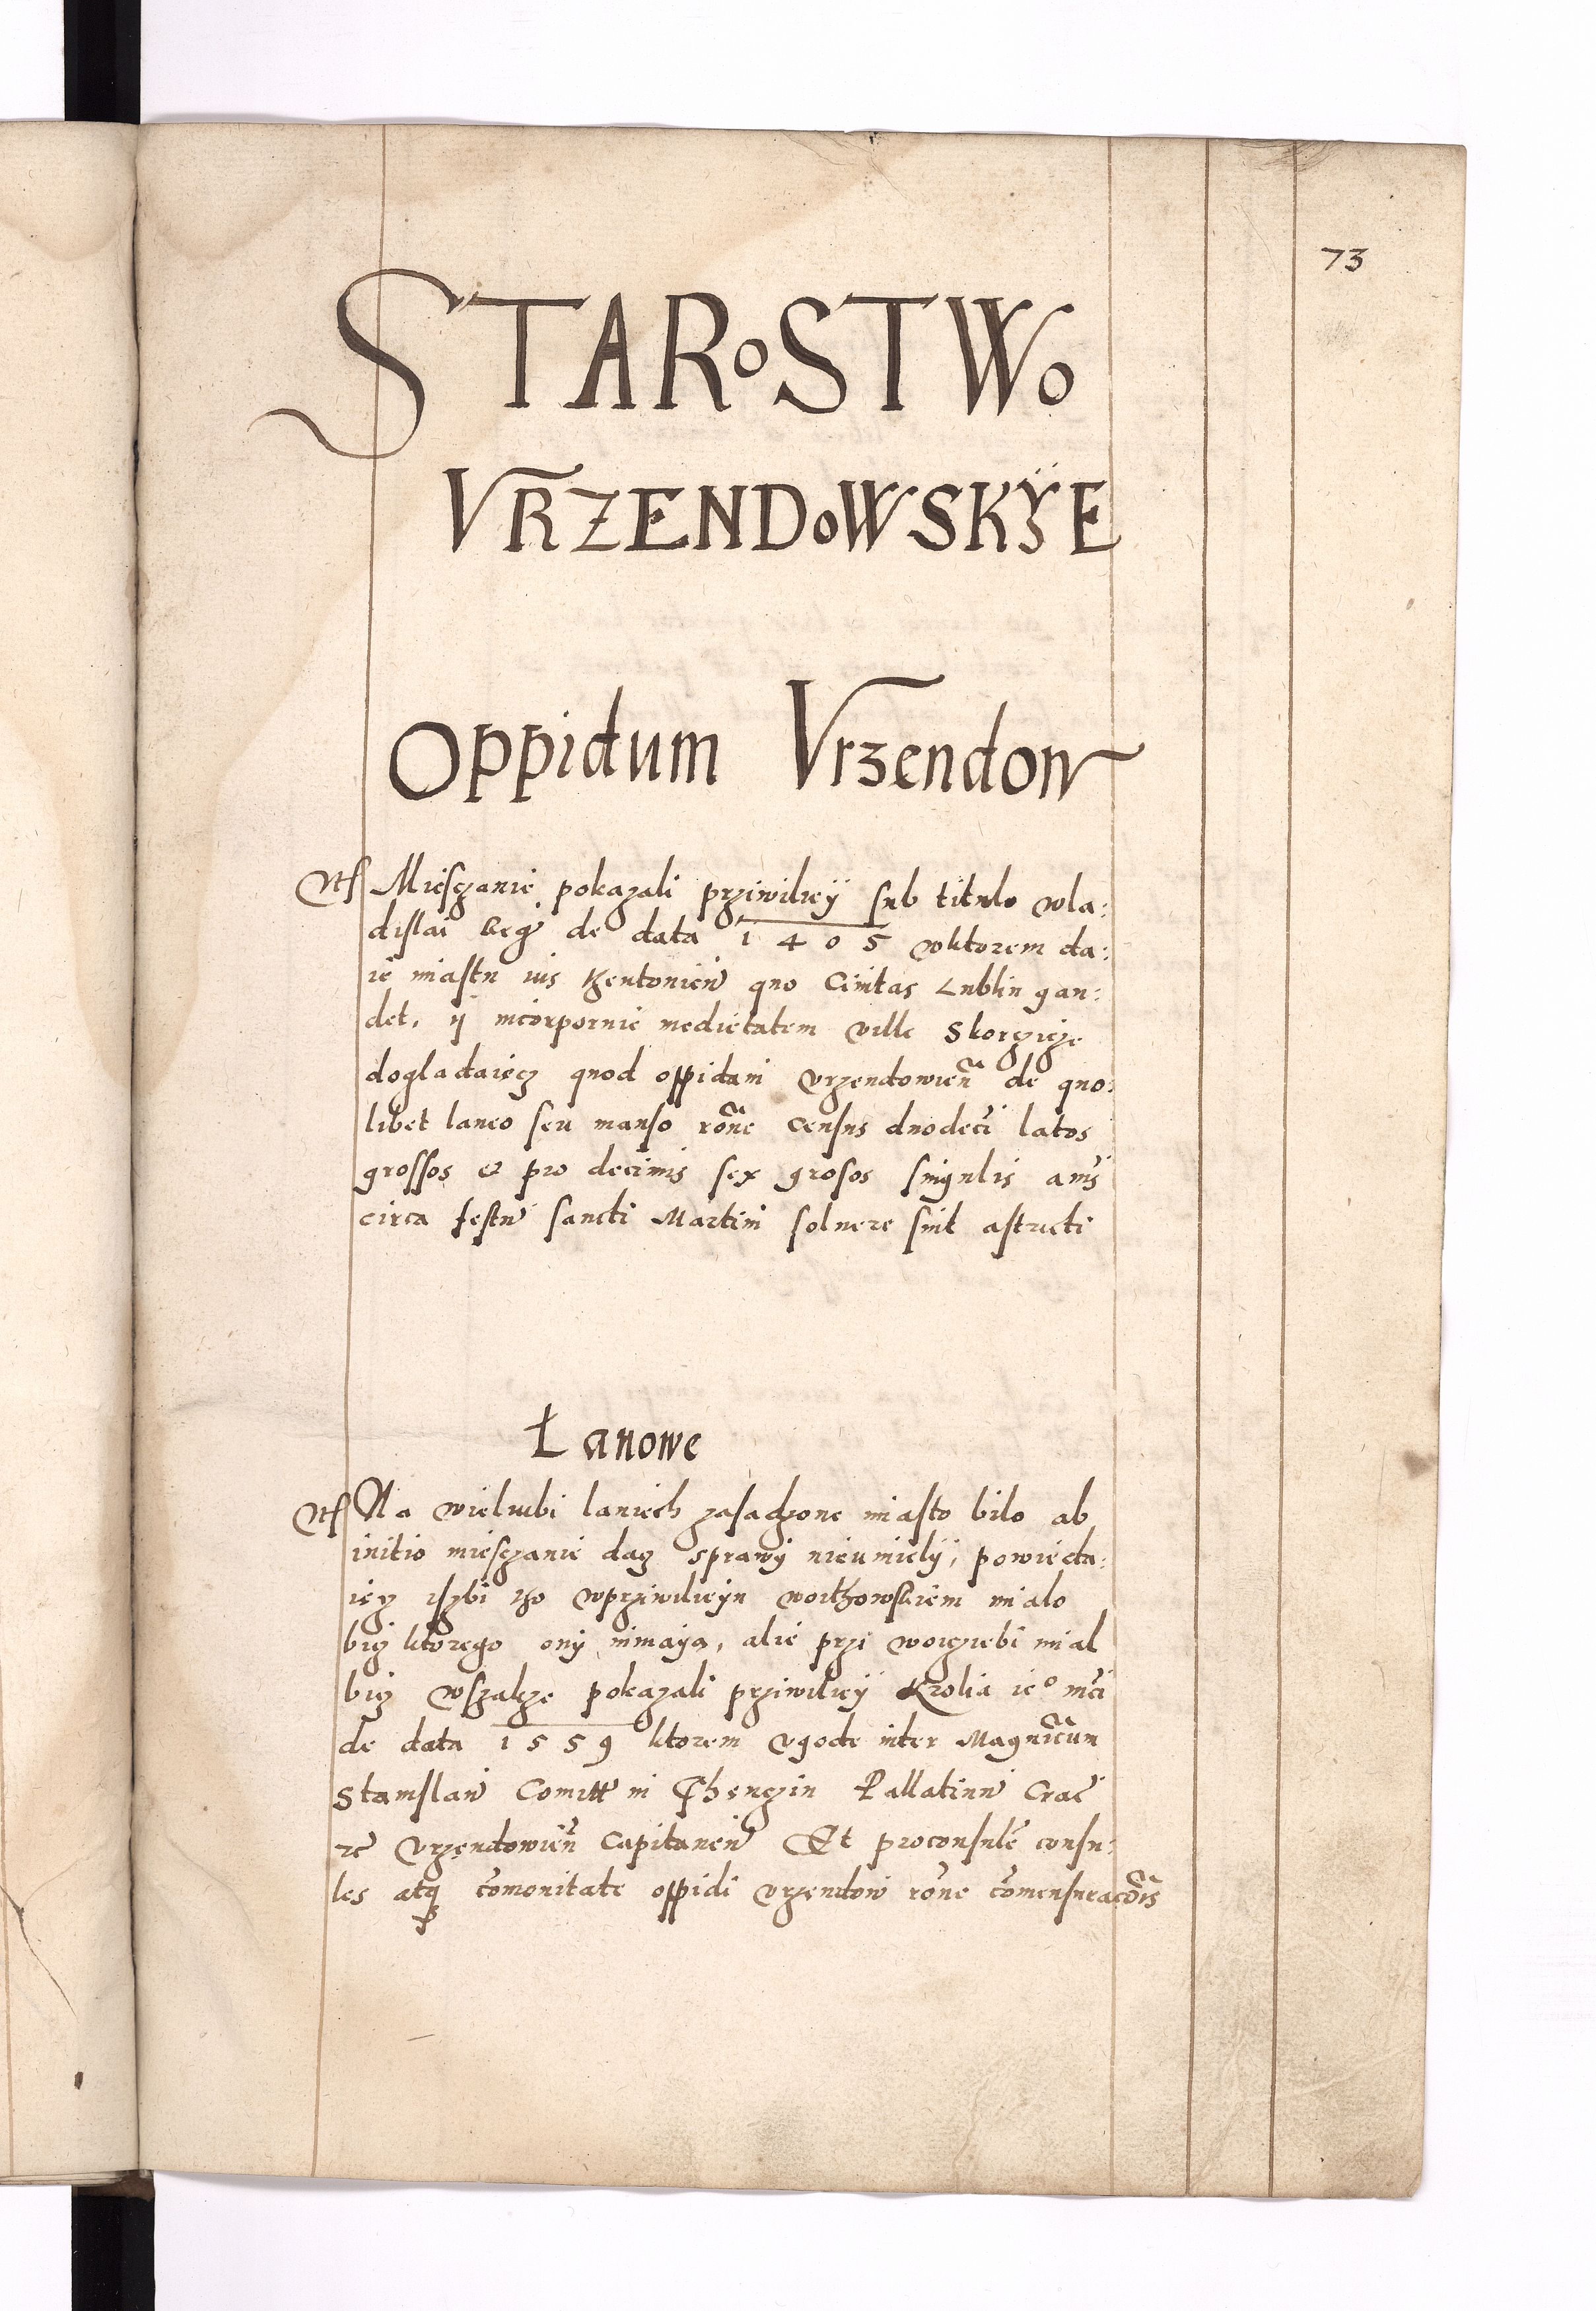 73
STAROSTWO
VRZENDOWSKÿE
Oppidum Vrzendow
Miesczanie pokazali prziwiliey sub titulo wla:
dislai Reg de data 1405 wktorem da:
ie miastu ius theutonicu quo Ciuitas Lublin gau:
det, ÿ incorporuie medietatem ville Skorczicze
dogladaiącz quod oppidani vrzendowien de quo:
libet laneo seu manso rone census duodeci latos
grossos et pro decimis sex grosos singulis anis
circa festu sancti Martini soluere sint astricti
Łanowe
Na wielubi laniech zasadzone miasto bilo ab
initio miesczanie dacz sprawÿ nieumielÿ, powieda:
iącz iszbi tho wprziwileyu woithowskiem mialo
bicz ktorego onÿ nimaÿa, alie przi woiczicbi mial
bicz wszakze pokazali prziwiliey Krolia ieo mci
de data 1559 ktorem vgode inter Magnicum
Stanislau Comitt in Thenczin Pallatinu Crac
ac vrzendowien Capitaneu Et proconsule consu:
les atq comonitate oppidi vrzendow rone comensuracois